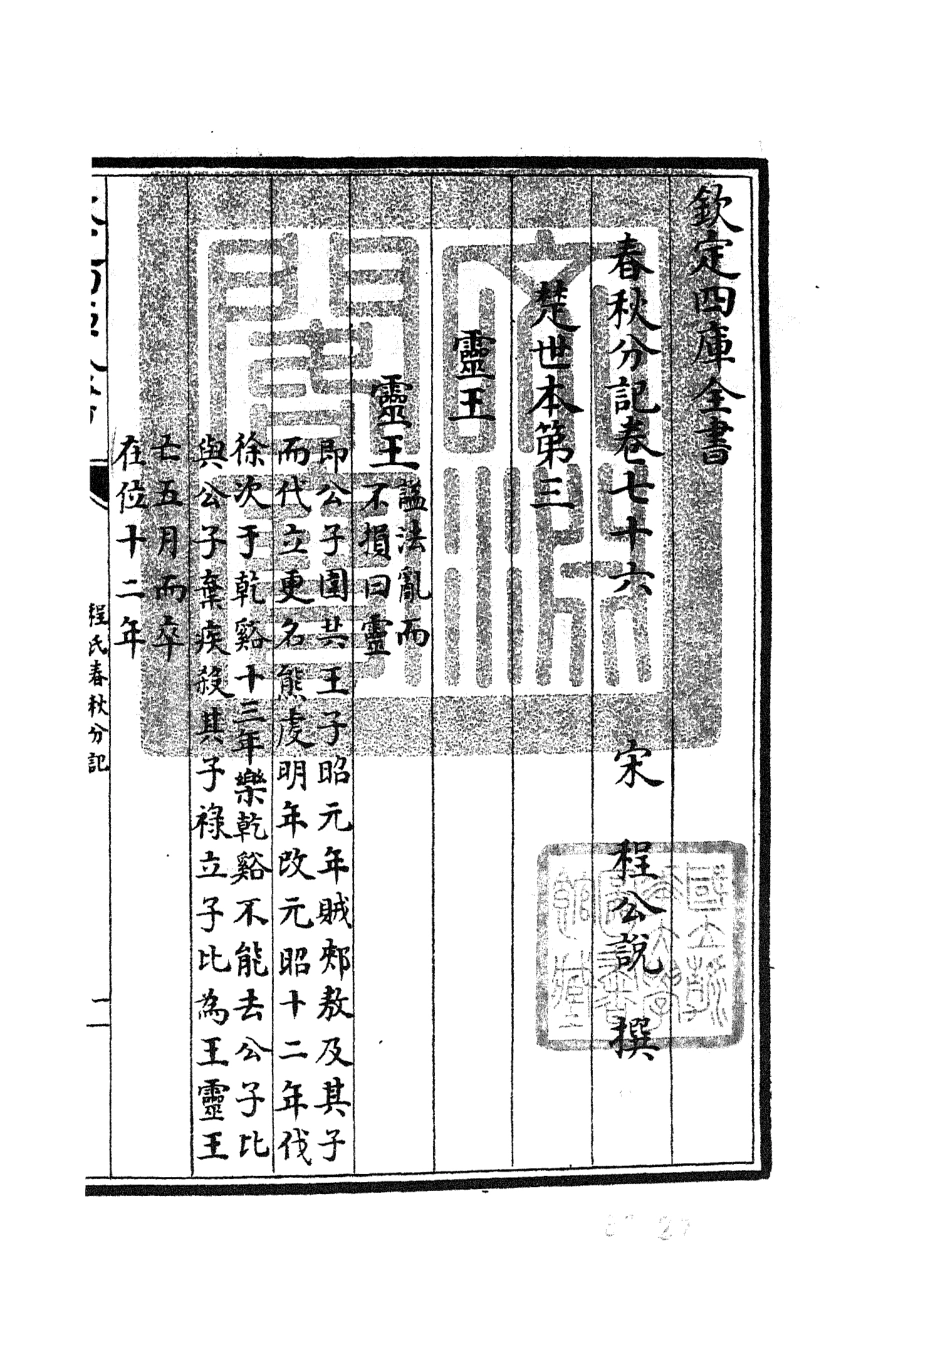 欽定四庫全書
春秋分記卷七十六
宋 程公說 撰
楚世本第三
靈王
靈王
諡法亂而
不損曰靈
即公子圍共王子昭元年賊郟敖及其子
而代立更名熊虔明年改元昭十二年伐
徐次于乾谿十三年樂乾谿不能去公子比
與公子棄疾殺其子祿立子比為王靈王
亡五月而卒
在位十二年
程氏春秋分記
一